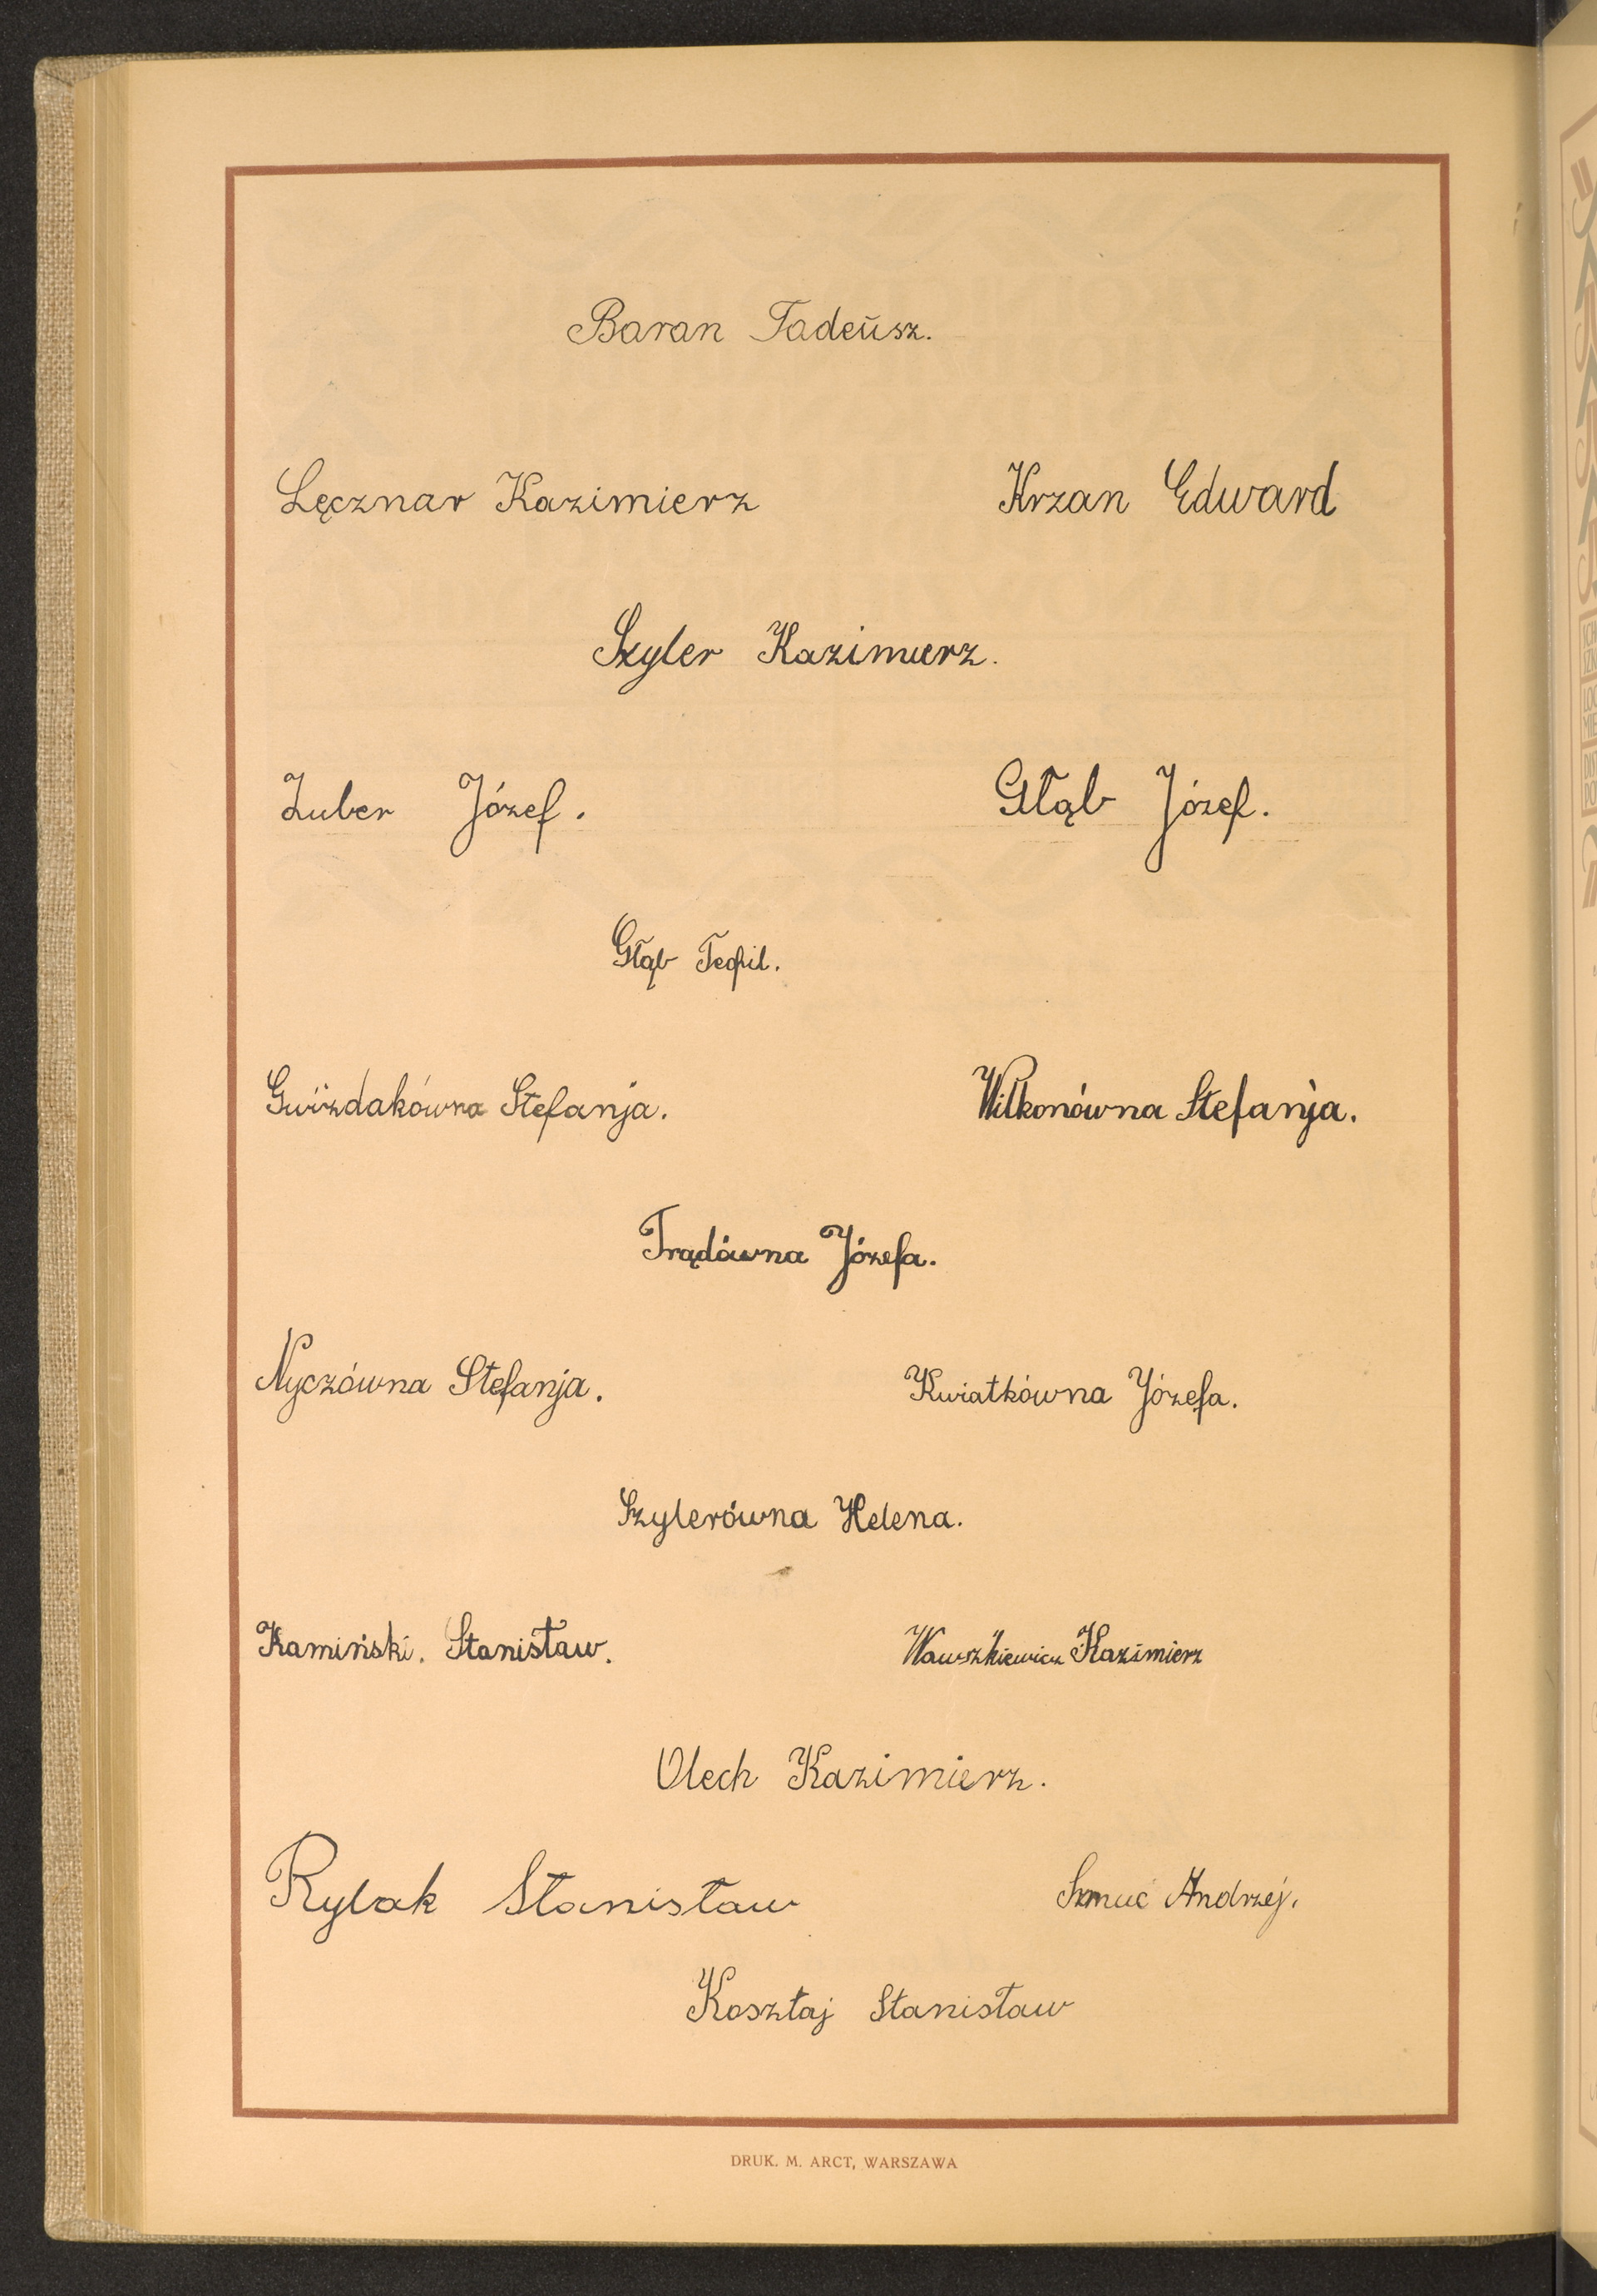 Baran Tadeusz.
Lęcznar Kazimierz Krzan Edward
Szyler Kazimierz.
Zuber Józef. Głąb Józef.
Głąb Teofil.
Gwiżdakówna Stefanja. Wilkonówna Stefanja.
Trądówna Józefa.
Nyczówna Stefanja. Kwiatkówna Józefa.
Szylerówna Helena.
Kamiński. Stanisław. Wawszkiewicz Kazimierz
Olech Kazimierz.
Rylak Stanisław Szmuć Andrzej.
Kosztaj Stanisław
DRUK. M. ARCT, WARSZAWA